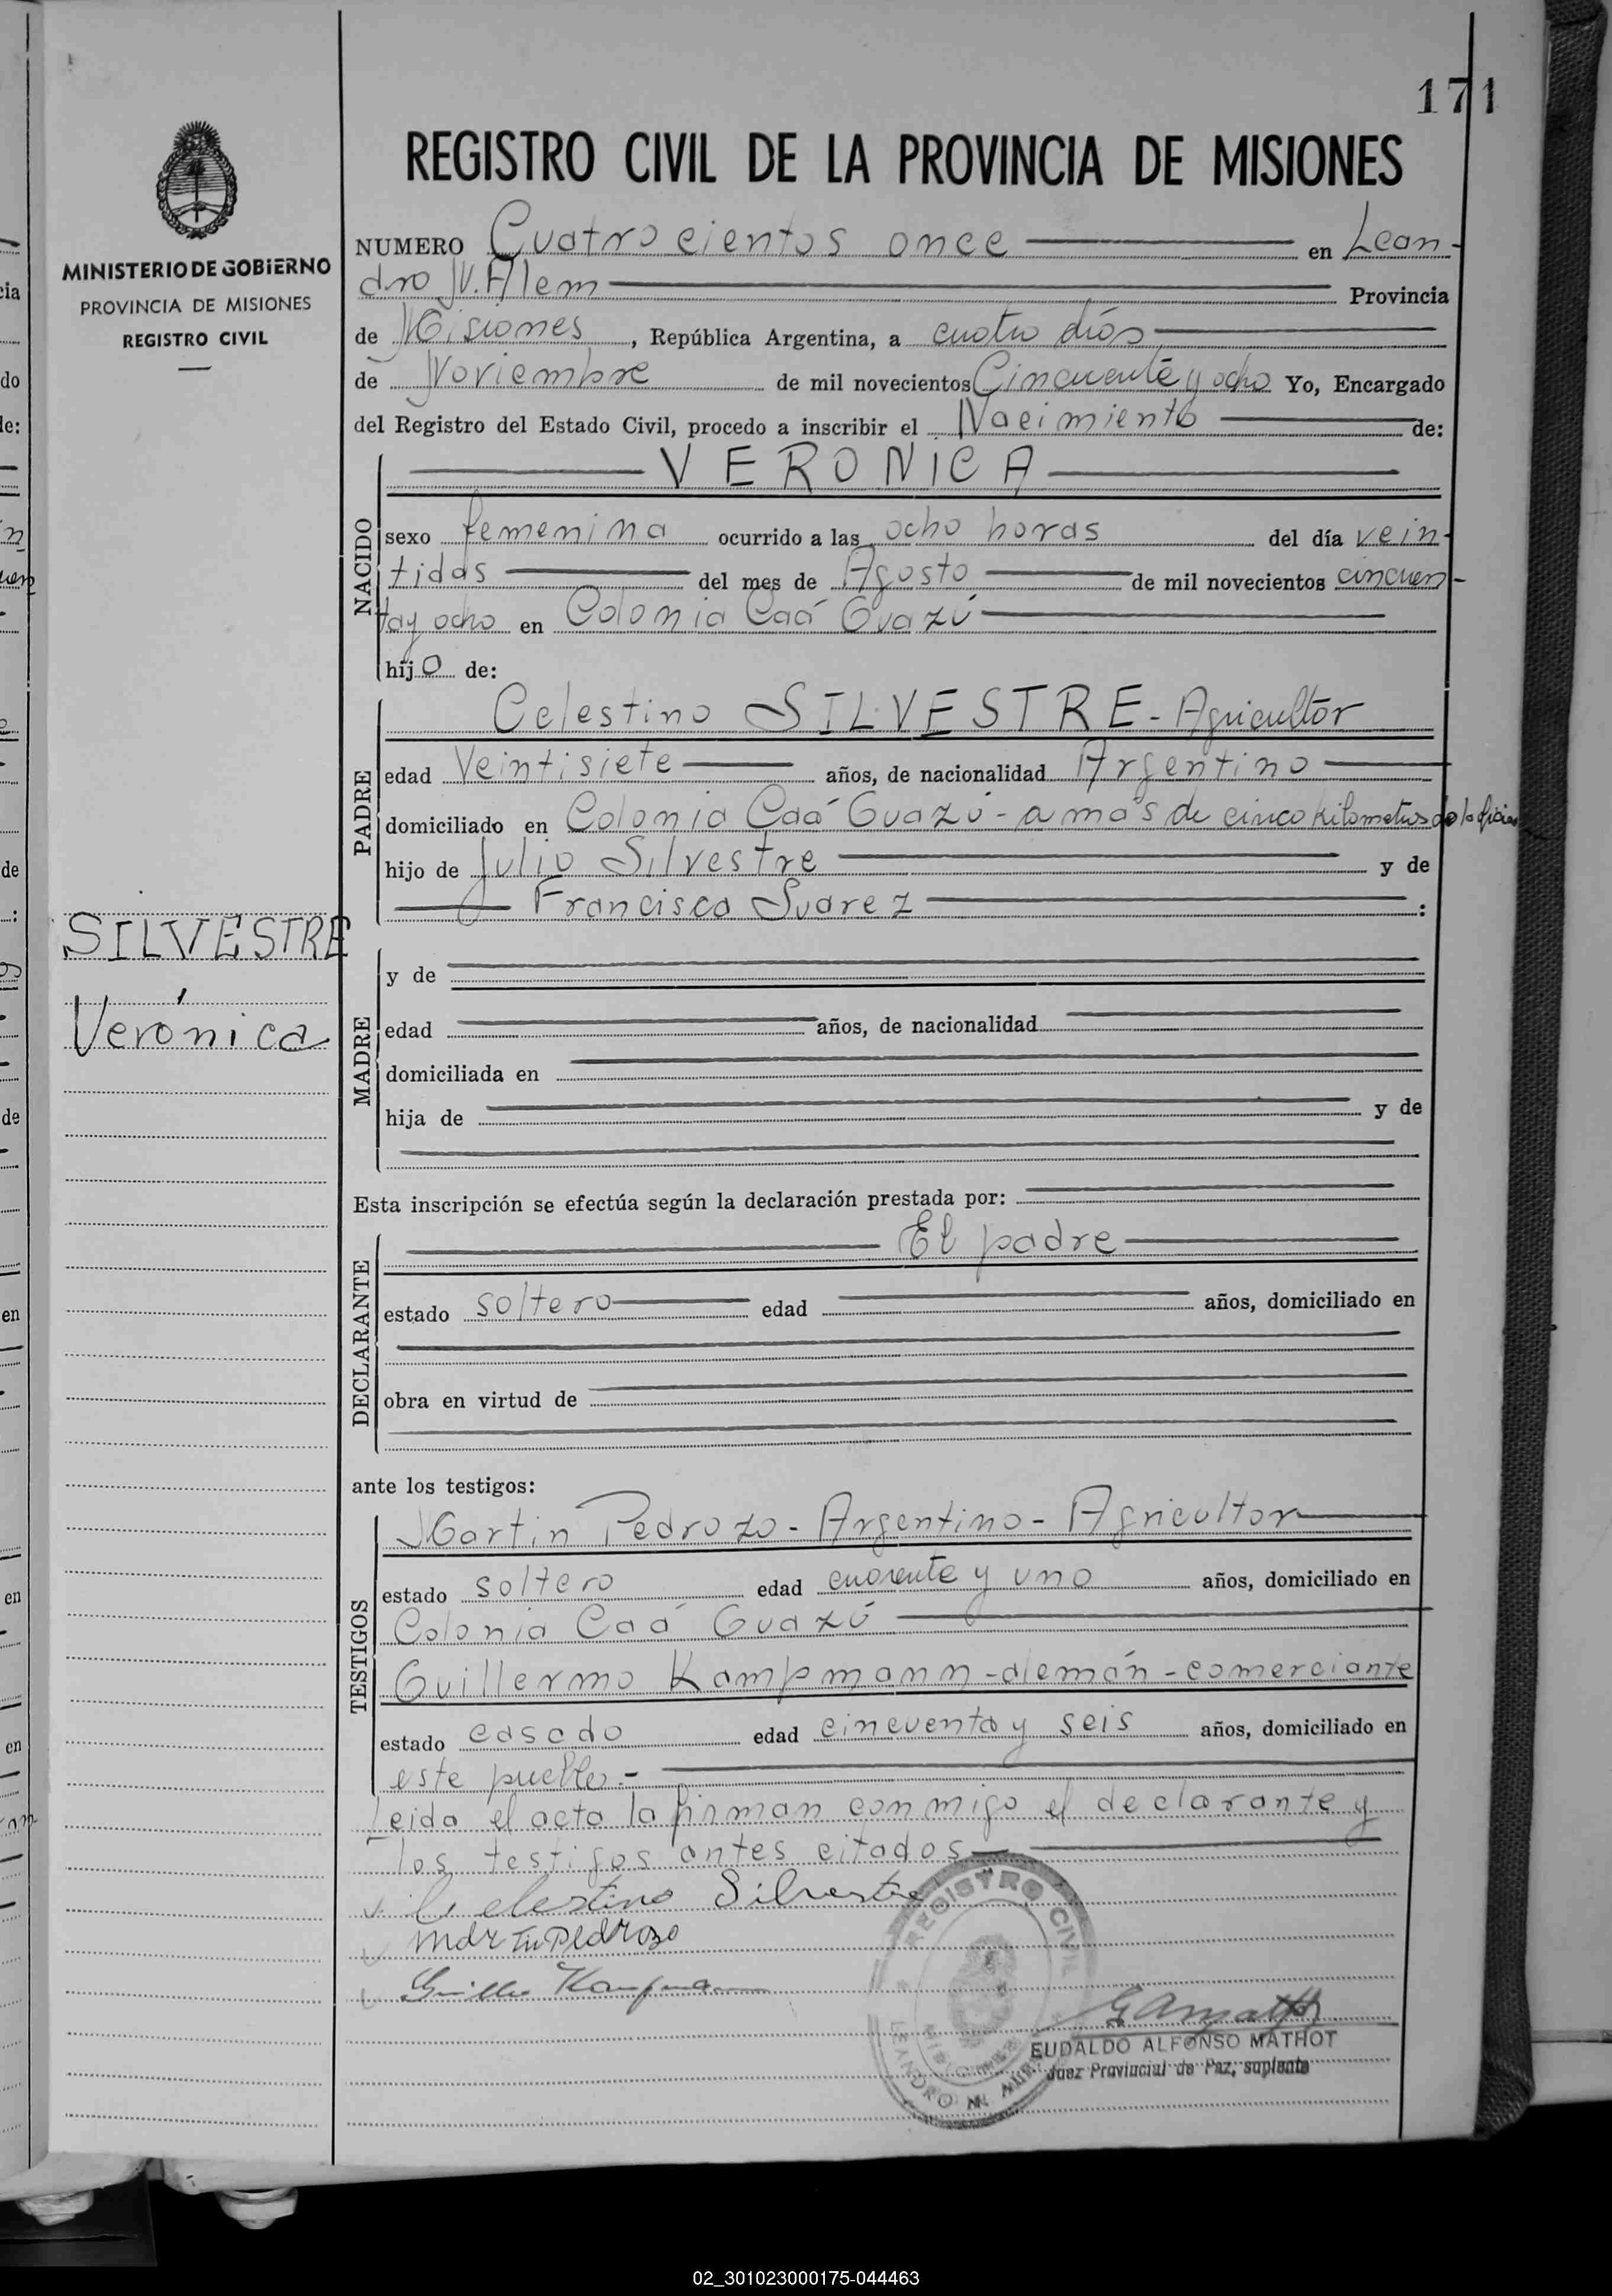 171
REGISTRO CIVIL DE LA PROVINCIA DE MISIONES
MINISTERIO DE GOBIERNO
PROVINCIA DE MISIONES
REGISTRO CIVIL
NUMERO Cuatrocientos once en Lean-
dro N. Alem Provincia
de Misiones, República Argentina, a cuatro días
de Noviembre de mil novecientos Cincuenta y ocho Yo, Encargado
del Registro del Estado Civil, procedo a inscribir el Nacimiento de:
VERONICA
NACIDO
sexo femenina ocurrido a las ocho horas del día vein-
tidos del mes de Agosto de mil novecientos cincuen-
ta y ocho en Colonia Caá Guazú
hijo de:
PADRE
Celestino SILVESTRE - Agricultor
edad Veintisiete años, de nacionalidad Argentino
domiciliado en Colonia Caá Guazú - a más de cinco kilometros de la oficina
hijo de Julio Silvestre y de
Francisca Suarez :
SILVESTRE
Verónica
MADRE
y de
edad años, de nacionalidad
domiciliada en
hija de y de
Esta inscripción se efectúa según la declaración prestada por:
DECLARANTE
El padre
estado soltero edad años, domiciliado en
obra en virtud de
ante los testigos:
TESTIGOS
Martin Pedrozo - Argentino - Agricultor
estado soltero edad cuarenta y uno años, domiciliado en
Colonia Caá Guazú
Guillermo Kampmann - alemán - comerciante
estado casado edad cincuenta y seis años, domiciliado en
este pueblo.-
Leida el acta la firman conmigo el declarante y
los testigos antes citados
Celestino Silvestre
Martin Pedrozo
REGISTRO CIVIL
MISIONES
LEANDRO N. ALEM
EUDALDO ALFONSO MATHOT
Juez Provincial de Paz, suplente
02_301023000175-044463